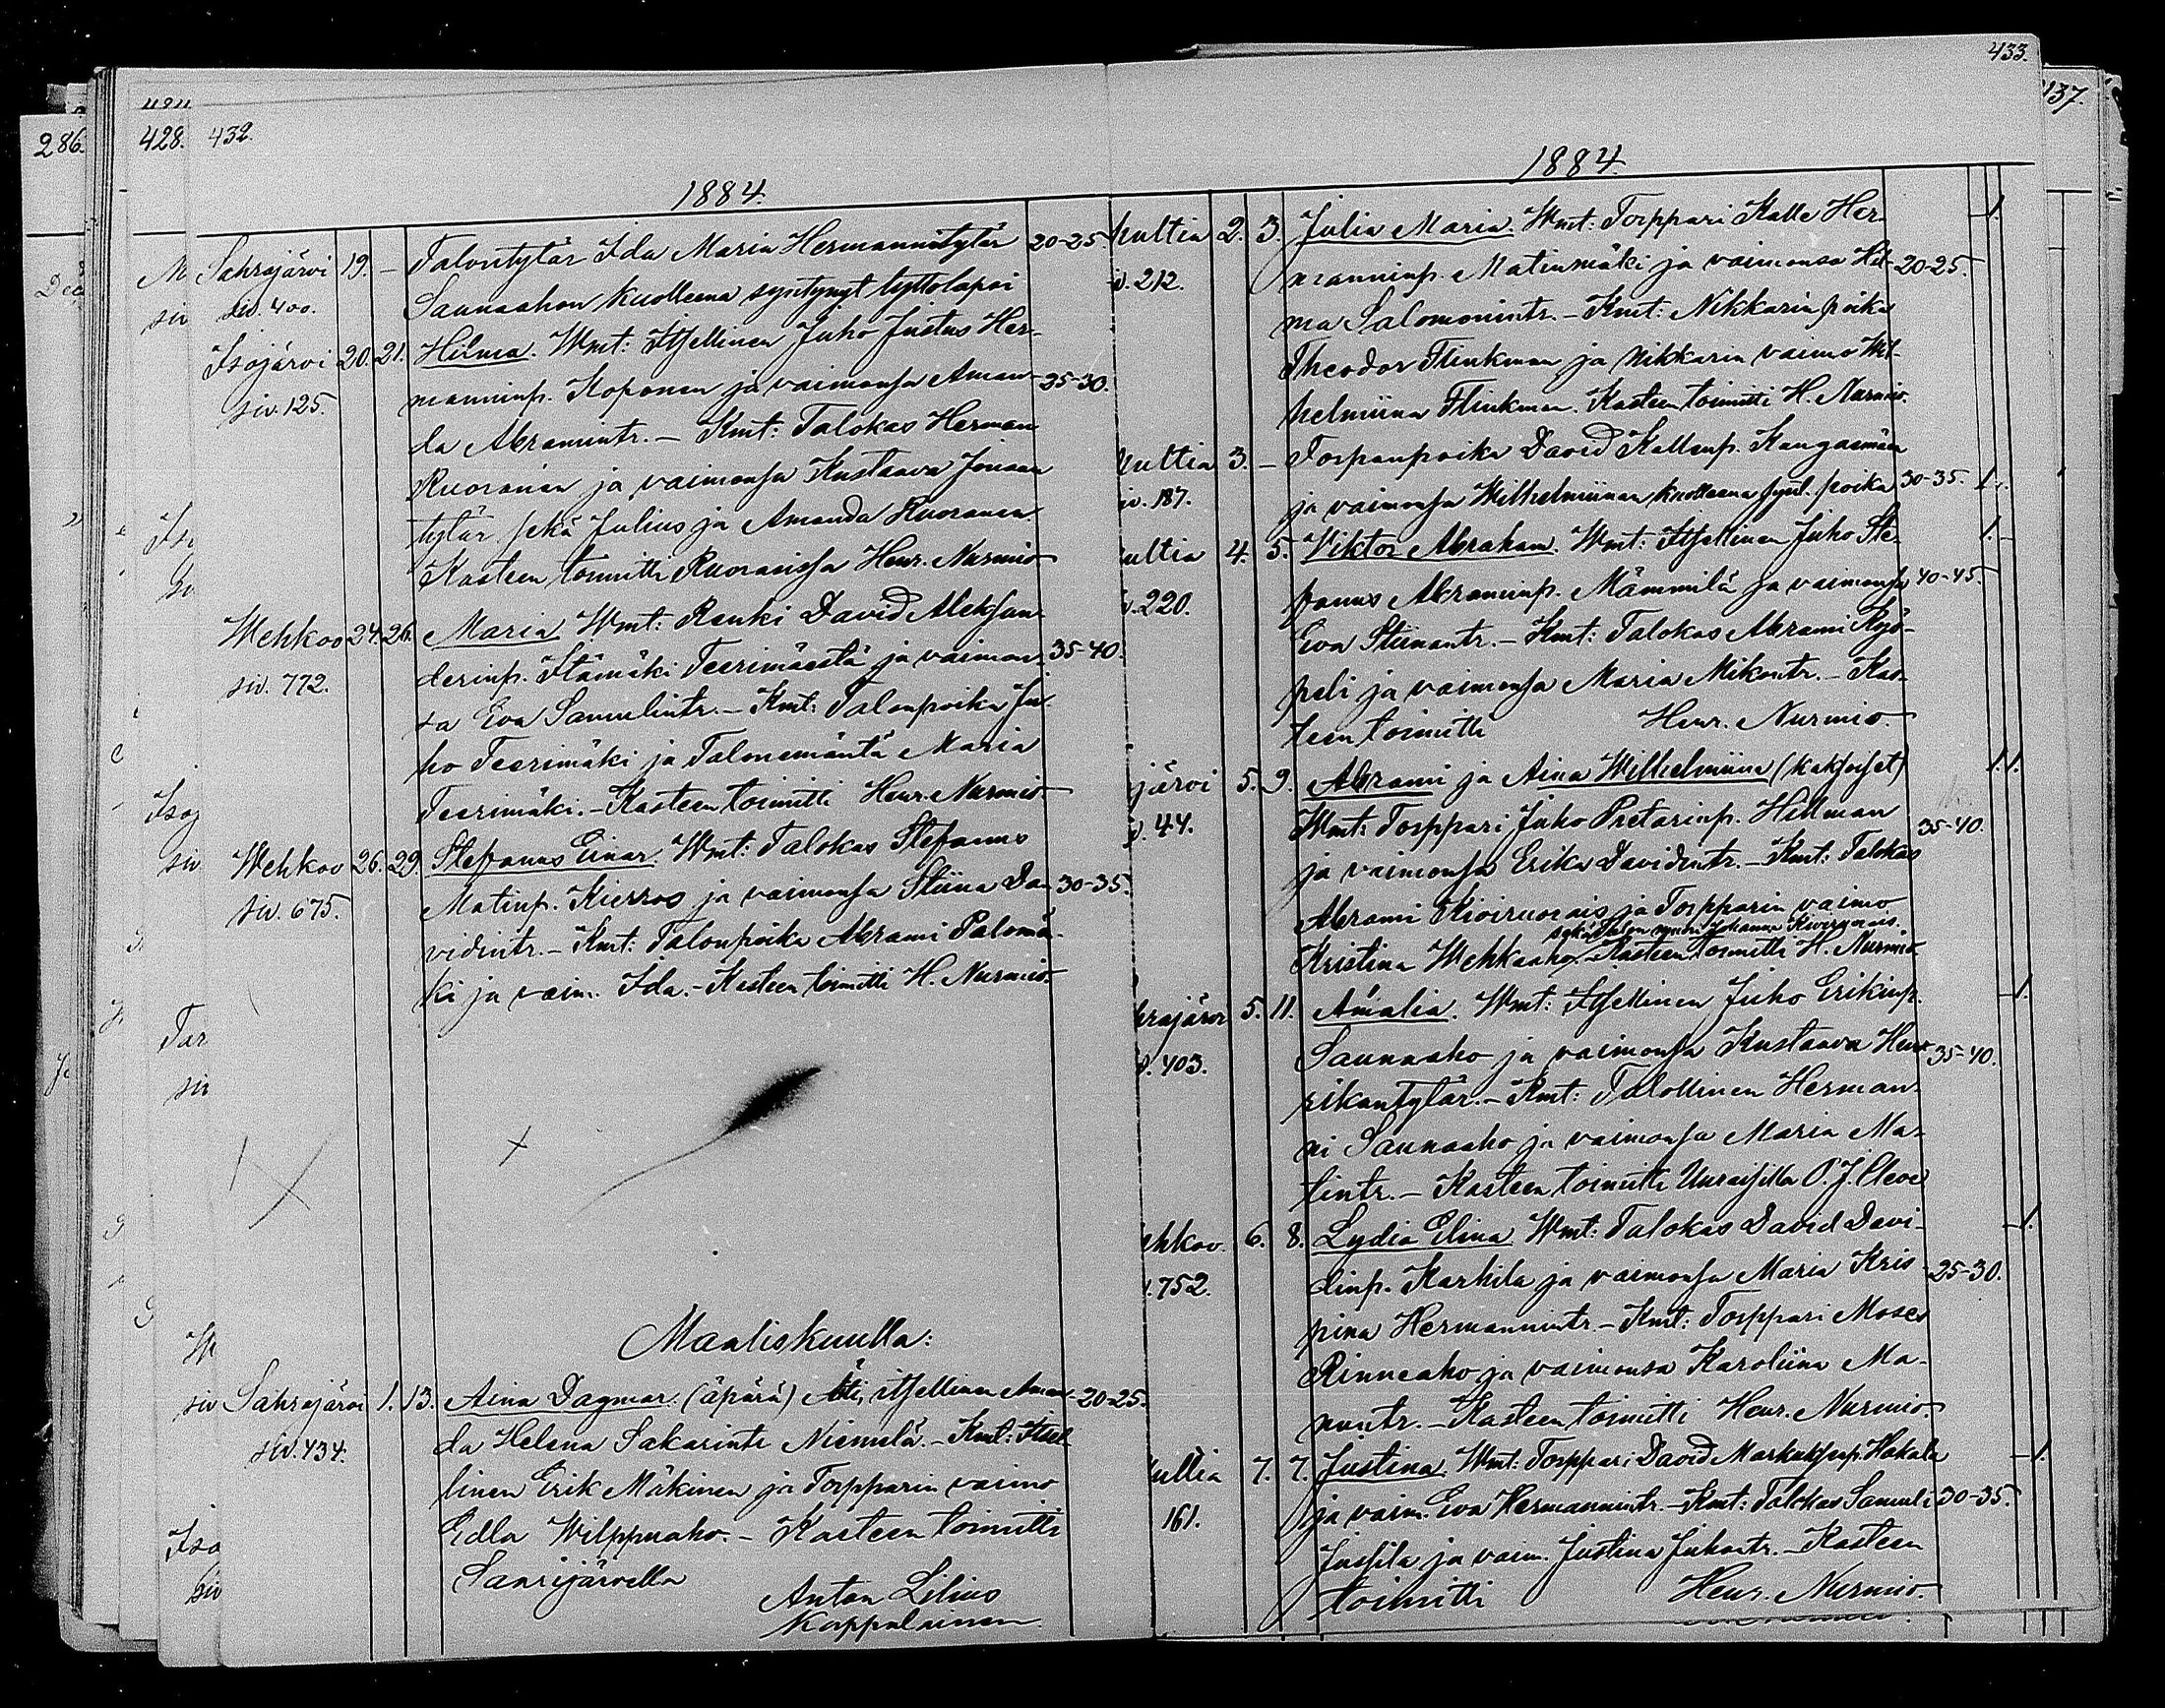 286.
428. 432.
1884.
Sahrajärvi 19. – Talontytär Ida Maria Hermannintytär 20-25.
siv. 400. Saunaahon kuolleena syntynyt tyttölapsi
Isojärvi 20. 21. Hilma. Wmt: Itsellinen Juho Justus Her-
siv. 125. manninp. Koponen ja vaimonsa Aman- 25-30.
da Abramintr. – Kmt: Talokas Herman
Ruoranen ja vaimonsa Kustaava Joonan
tytär sekä Julius ja Amanda Ruoranen.
Kasteen toimitti Ruorasissa Henr. Nurmio
Wehkoo 24. 26. Maria Wmt: Renki David Aleksan-
siv. 772. derinp. Itämäki Teerimäestä ja vaimon- 35-40.
sa Eva Samulintr. – Kmt: Talonpoika Ju-
ho Teerimäki ja Talonemäntä Maria
Teerimäki. – Kasteen toimitti Henr. Nurmio.
Wehkoo 26. 29. Stefanus Einar. Wmt: Talokas Stefanus
siv. 675. Matinp. Kierros ja vaimonsa Stiina Da- 30-35.
vidintr. – Kmt: Talonpoika Abrami Palomä-
ki ja vaim. Ida. – Kasteen toimitti H. Nurmio.
Maaliskuulla:
Sahrajärvi 1. 13. Aina Dagmar. (äpärä) Äiti, itsellinen Aman- 20-25.
siv. 434. da Helena Sakarintr Niemelä. – Kmt: Itsel-
linen Erik Mäkinen ja Torpparin vaimo
Edla Wilppuaho. – Kasteen toimitti
Saarijärvella
Anton Lilius
Kappalainen.
433.
137.
1884.
Kultia 2. 3. Julia Maria. Wmt: Torppari Kalle Her- –1.
siv. 212. manninp. Matinmäki ja vaimonsa Hil- 20-25.
ma Salomonintr. – Kmt: Nikkarinpoika
Theodor Flinkman ja Nikkarin vaimo Wil-
helmiina Flinkman. Kasteen toimitti H. Nurmio.
Kultia 3. – Torpanpoika David Kallenp. Kangasmäen
iv. 187. ja vaimonsa Wilhelmiinan kuolleena synt. poika 30-35. 1.
ultia 4. 5. Viktor Abraham. Wmt: Itsellinen Juho Ste- 1.–
v. 220. fanus Abraminp. Mämmilä ja vaimonsa 40-45.
Eva Stiinantr. – Kmt: Talokas Abrami Ryö-
peli ja vaimonsa Maria Mikontr. – Kas-
teen toimitti Henr. Nurmio.
järvi 5. 9. Abrami ja Aina Wilhelmiina (kaksoiset) 1.1.
v. 44. Wmt: Torppari Juho Pretarinp. Hillman 35-40.
ja vaimonsa Erika Davidintr. – Kmt: Talokas
Abrami Kiviruorais ja Torpparin vaimo
sekä Talon Johanna Kiviruorais.
Kristina Wehkaaho – Kasteen toimitti H. Nurmio
hrajärvi 5. 11. Amalia. Wmt: Itsellinen Juho Erikinp. –1.
v. 403. Saunaaho ja vaimonsa Kustaava Hen- 35-40.
rikintytär. – Kmt: Talollinen Herman-
ni Saunaaho ja vaimonsa Maria Ma-
tintr. – Kasteen toimitti Uuraisilla O. J. Cleve
ehkoo. 6. 8. Lydia Elina Wmt: Talokas David Davi- –1.
v. 752. dinp. Karhila ja vaimonsa Maria Kris- 25-30.
piina Hermannintr. – Kmt: Torppari Moses
Rinneaho ja vaimonsa Karoliina Ma-
nuntr. – Kasteen toimitti Henr. Nurmio.
Kultia 7. 7. Justina. Wmt: Torppari David Markuksenp. Hakala –1.
161. ja vaim. Eva Hermannintr. – Kmt: Talokas Samuli 30-35.
Jussila ja vaim. Justina Juhontr. – Kasteen
toimitti Henr. Nurmio.